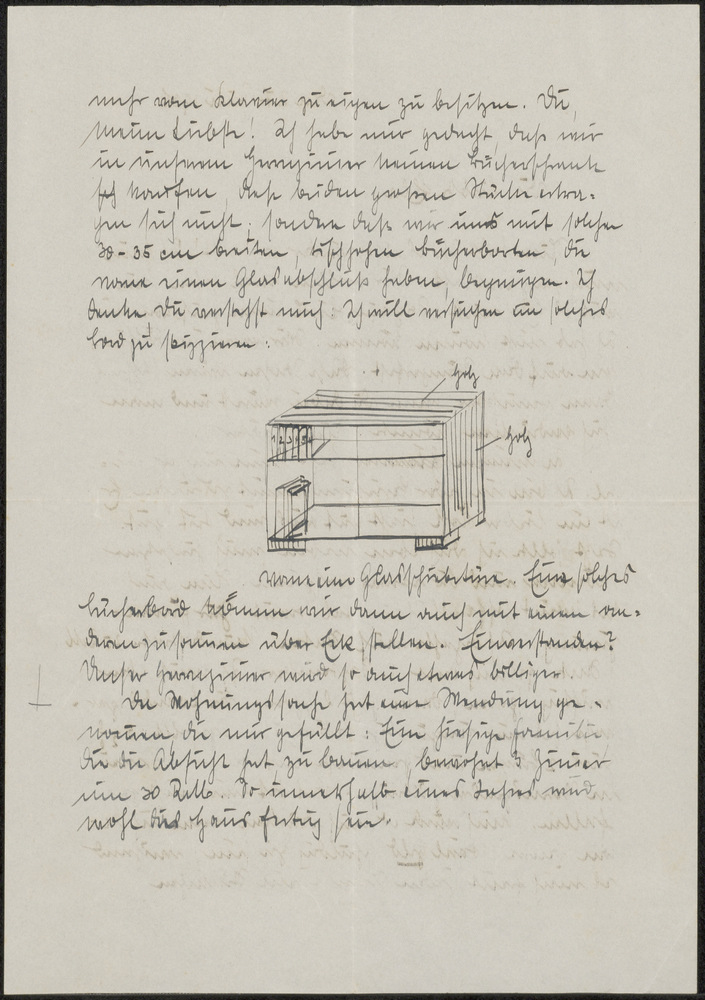 mehr vom Klavier zu eigen zu besitzen. Du,
meine Liebste! Ich habe nur gedacht, daß wir
in unserem Herrnzimmer keinen Bücherschrank
kaufen, diese beiden großen Stücke ertra-
gen sich nicht, sondern daß wir uns mit solchen
30-35 cm breiten, tischhohen Bücherborten, die
vorne einen Glasabschluß haben, begnügen. Ich
denke Du verstehst mich: Ich will versuchen ein solches
Bord zu skizzieren:
Holz
1 2 3 4 5 6
Holz
vorne eine Glasschiebetüre. Eine solches
Bücherbord können wir dann auch mit einem an-
deren zusammen über Eck stellen. Einverstanden?
Unser Herrnzimmer wird so auch etwas billiger.
Die Wohnungssache hat eine Wendung ge-
nommen, die mir gefällt: Eine hiesige Familie
die die Absicht hat, zu bauen, bewohnt 3 Zimmer
um 30 RM. So innerhalb eines Jahres wird
wohl das Haus fertig sein.